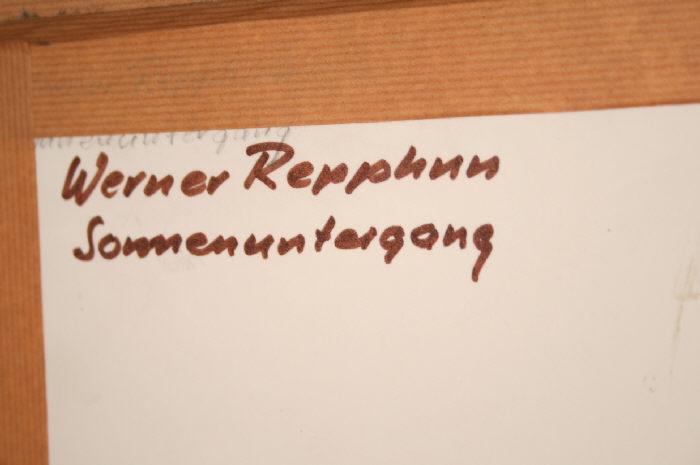 Sonnenuntergang
Werner Repphun
Sonnenuntergang